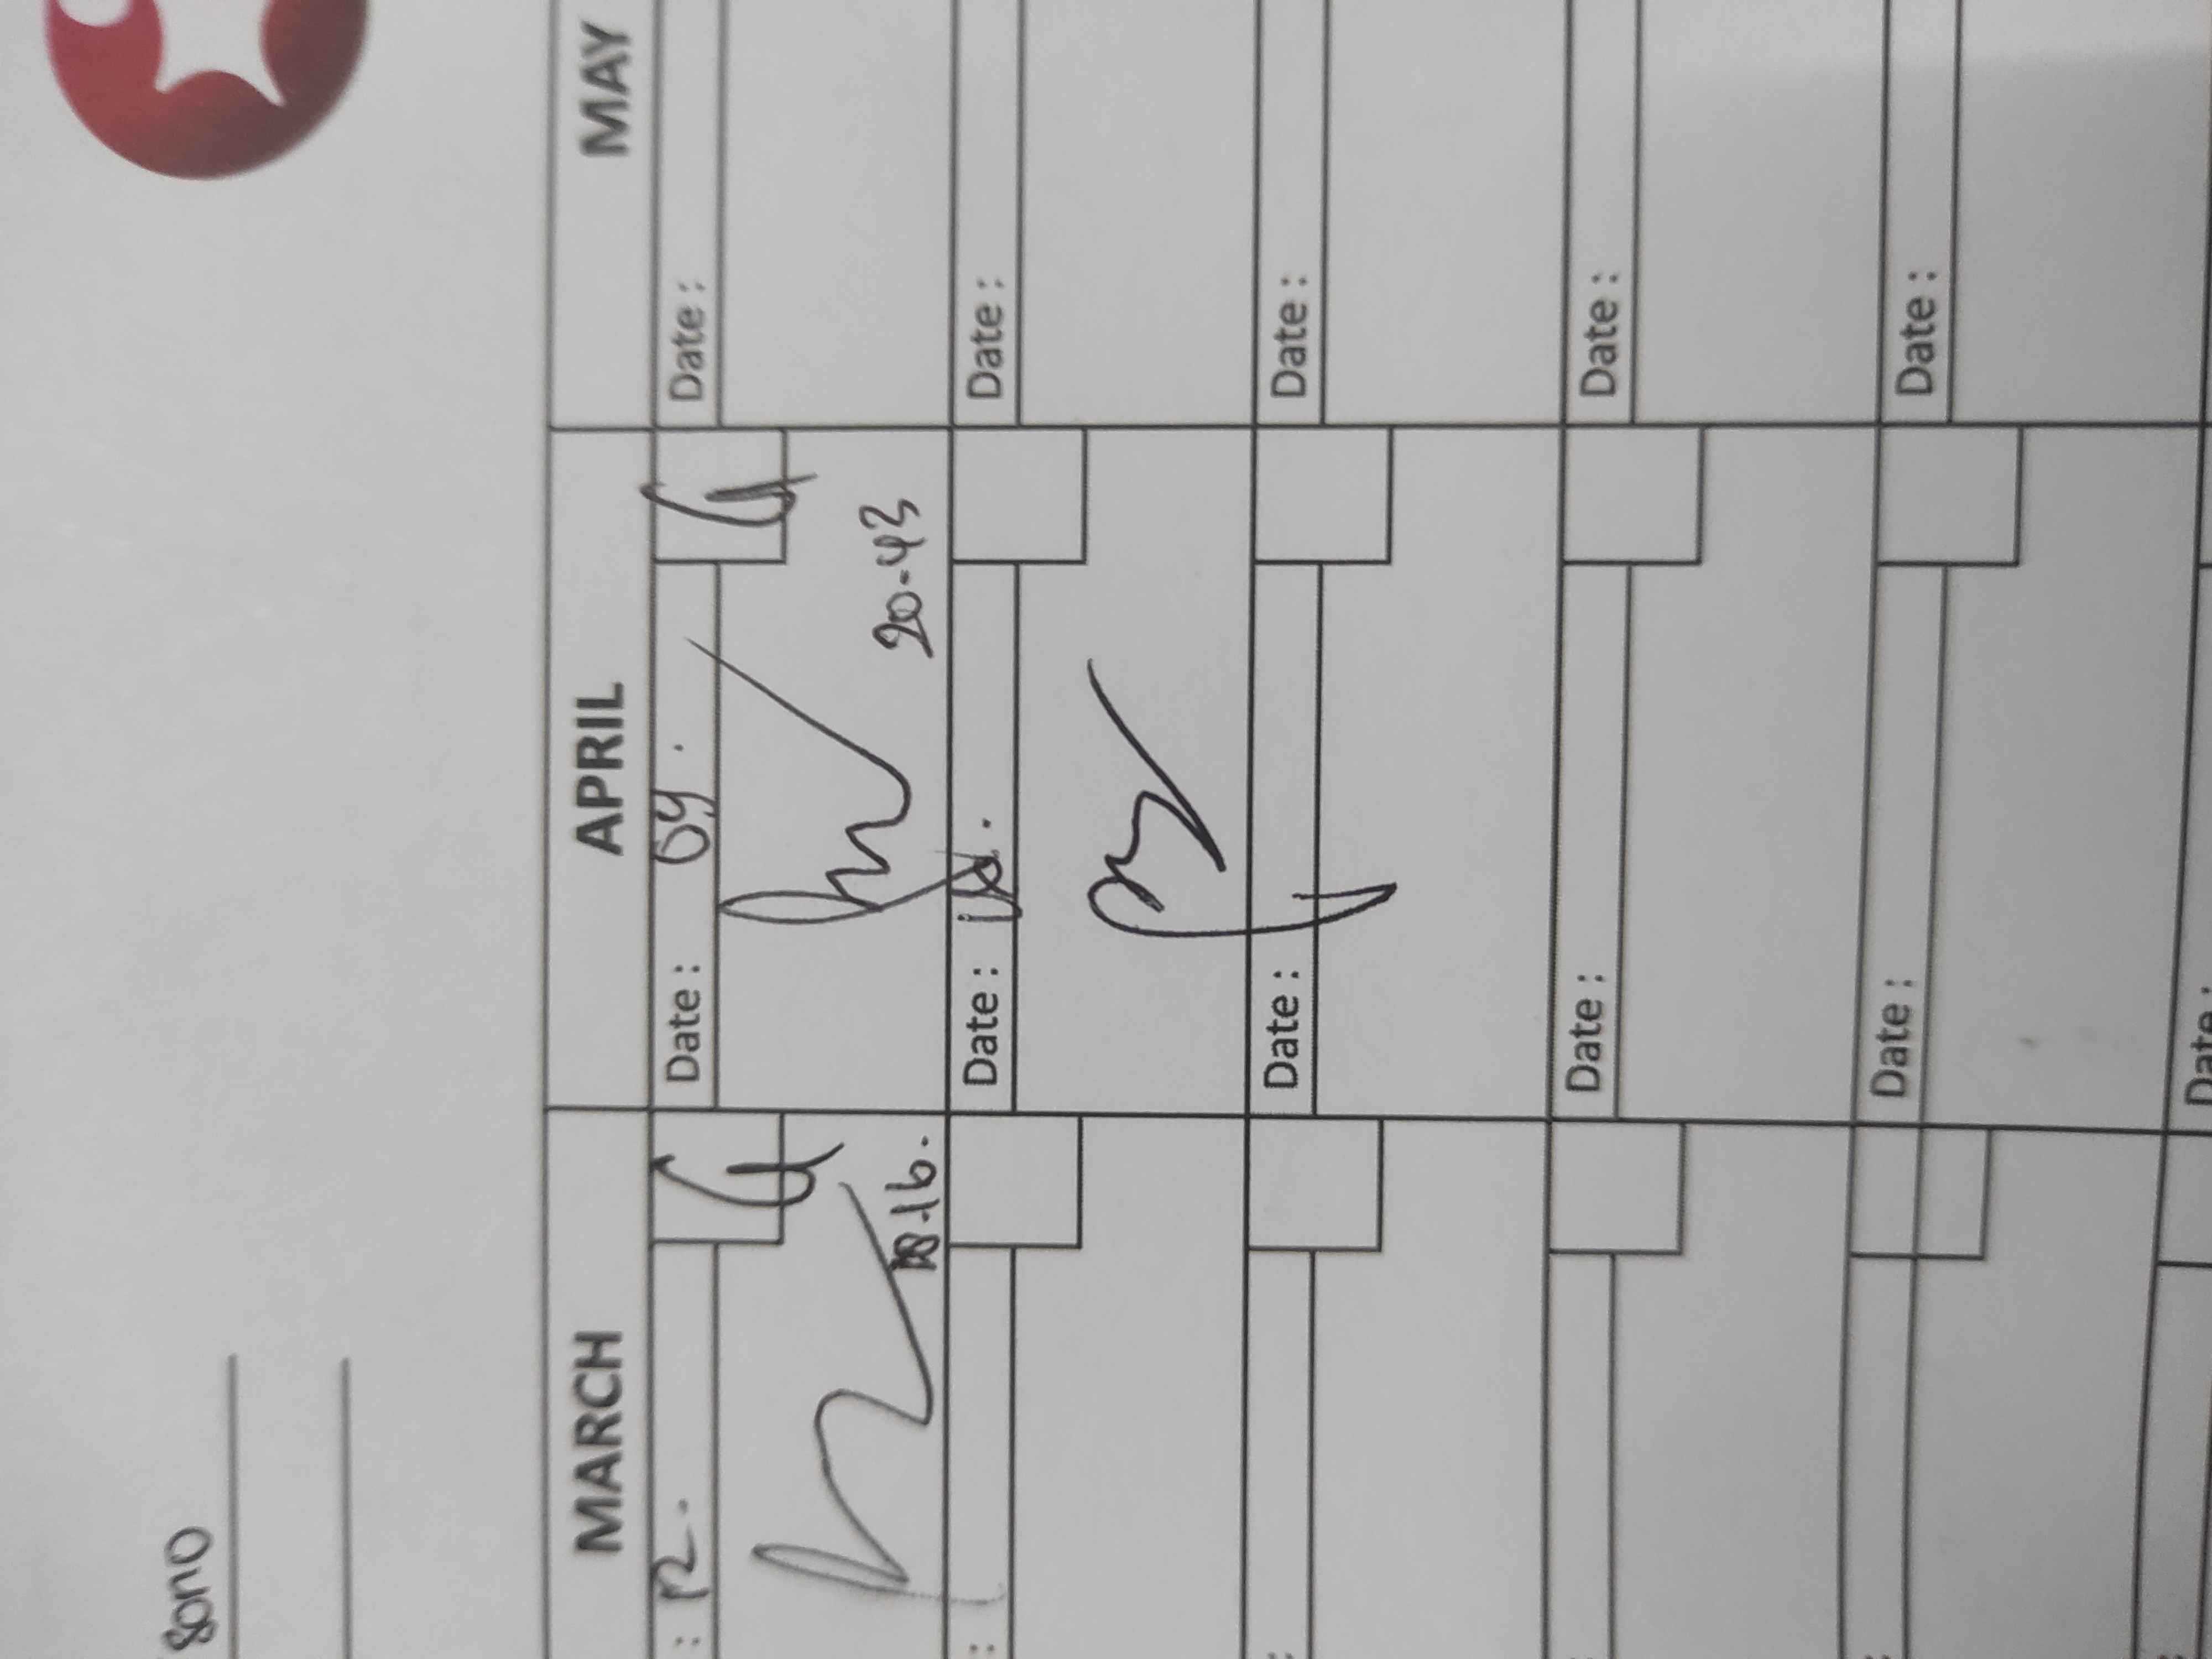 sono
MARCH APRIL MAY
: 12. Date : 09. Date :
18.16. 20.43
: Date : Date :
: Date : Date :
Date : Date :
: Date : Date :
: Date :